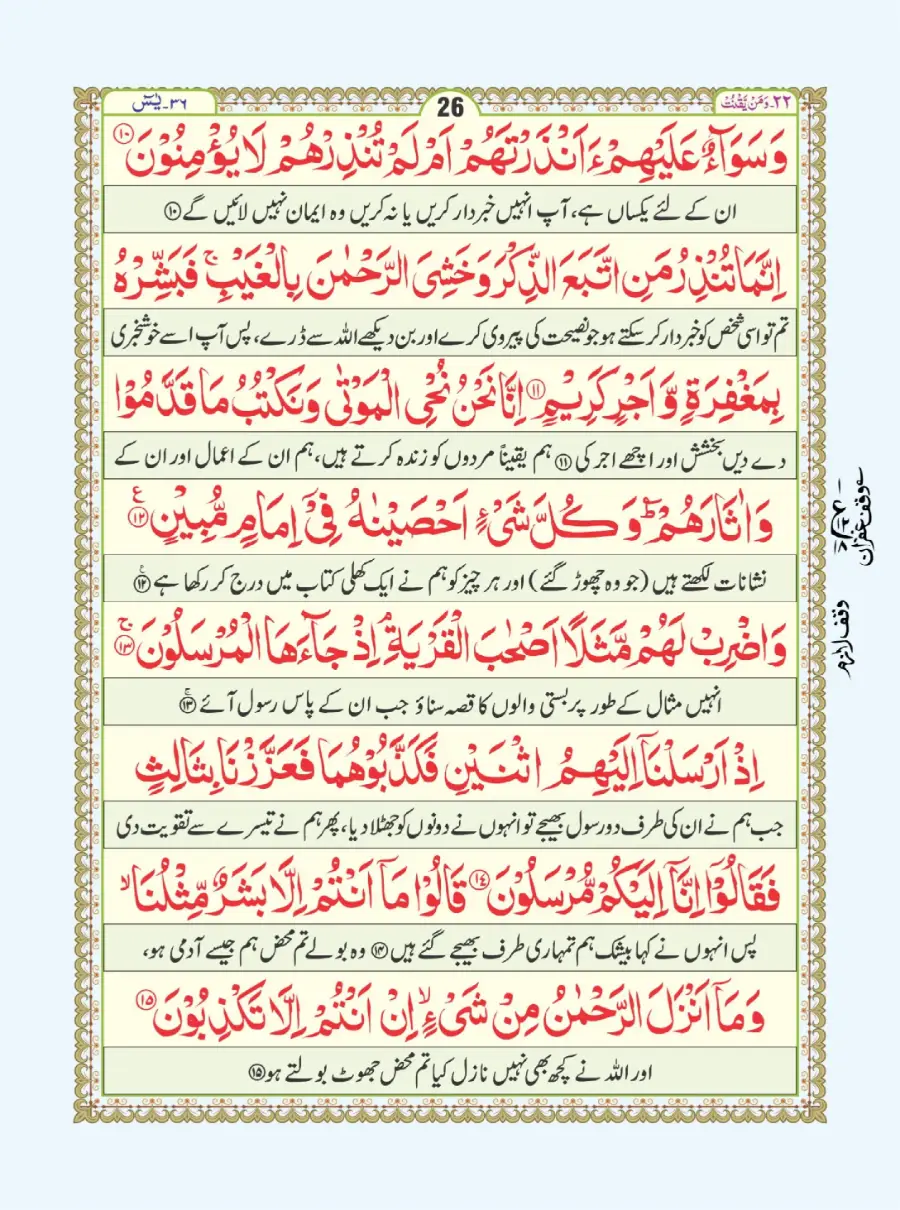 ٢٢۔ وَمَنْ يَّقْنُتْ
26
٣٦۔ يٰسٓ
وَسَوَآءٌ عَلَيْهِمْ ءَاَنْذَرْتَهُمْ اَمْ لَمْ تُنْذِرْهُمْ لَا يُؤْمِنُوْنَ ۝١٠
ان کے لئے یکساں ہے، آپ انہیں خبردار کریں یا نہ کریں وہ ایمان نہیں لائیں گے ۝١٠
اِنَّمَا تُنْذِرُ مَنِ اتَّبَعَ الذِّكْرَ وَخَشِيَ الرَّحْمٰنَ بِالْغَيْبِ ۚ فَبَشِّرْهُ
تم تو اسی شخص کو خبردار کر سکتے ہو جو نصیحت کی پیروی کرے اور بن دیکھے اللہ سے ڈرے، پس آپ اسے خوشخبری
بِمَغْفِرَةٍ وَّاَجْرٍ كَرِيْمٍ ۝١١ اِنَّا نَحْنُ نُحْيِ الْمَوْتٰى وَنَكْتُبُ مَا قَدَّمُوْا
دے دیں بخشش اور اچھے اجر کی ۝١١ ہم یقیناً مردوں کو زندہ کرتے ہیں، ہم ان کے اعمال اور ان کے
وَاٰثَارَهُمْ ؕ وَكُلَّ شَيْءٍ اَحْصَيْنٰهُ فِيْٓ اِمَامٍ مُّبِيْنٍ ۝١٢ ع
نشانات لکھتے ہیں (جو وہ چھوڑ گئے) اور ہر چیز کو ہم نے ایک کھلی کتاب میں درج کر رکھا ہے ۝١٢
وَاضْرِبْ لَهُمْ مَّثَلًا اَصْحٰبَ الْقَرْيَةِ ۘ اِذْ جَآءَهَا الْمُرْسَلُوْنَ ۝١٣ ۚ
انہیں مثال کے طور پر بستی والوں کا قصہ سناؤ جب ان کے پاس رسول آئے ۝١٣
اِذْ اَرْسَلْنَآ اِلَيْهِمُ اثْنَيْنِ فَكَذَّبُوْهُمَا فَعَزَّزْنَا بِثَالِثٍ
جب ہم نے ان کی طرف دو رسول بھیجے تو انہوں نے دونوں کو جھٹلا دیا، پھر ہم نے تیسرے سے تقویت دی
فَقَالُوْٓا اِنَّآ اِلَيْكُمْ مُّرْسَلُوْنَ ۝١٤ قَالُوْا مَآ اَنْتُمْ اِلَّا بَشَرٌ مِّثْلُنَا ۙ
پس انہوں نے کہا بیشک ہم تمہاری طرف بھیجے گئے ہیں ۝١۴ وہ بولے تم محض ہم جیسے آدمی ہو،
وَمَآ اَنْزَلَ الرَّحْمٰنُ مِنْ شَيْءٍ ۙ اِنْ اَنْتُمْ اِلَّا تَكْذِبُوْنَ ۝١٥
اور اللہ نے کچھ بھی نہیں نازل کیا تم محض جھوٹ بولتے ہو ۝١٥
وقف غفران
وقف لازم